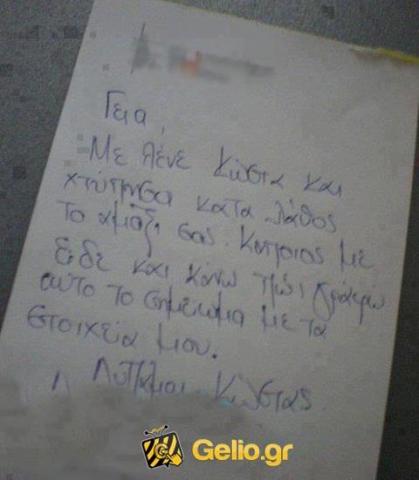 Γεια,
Με λένε Κώστα και
χτύπησα κατα λάθος
το αμάξι σας. Κάποιος με
είδε και κάνω πως γράφω
αυτο το σημείωμα με τα
στοιχεία μου.
Λυπάμαι. Κώστας
Gelio.gr